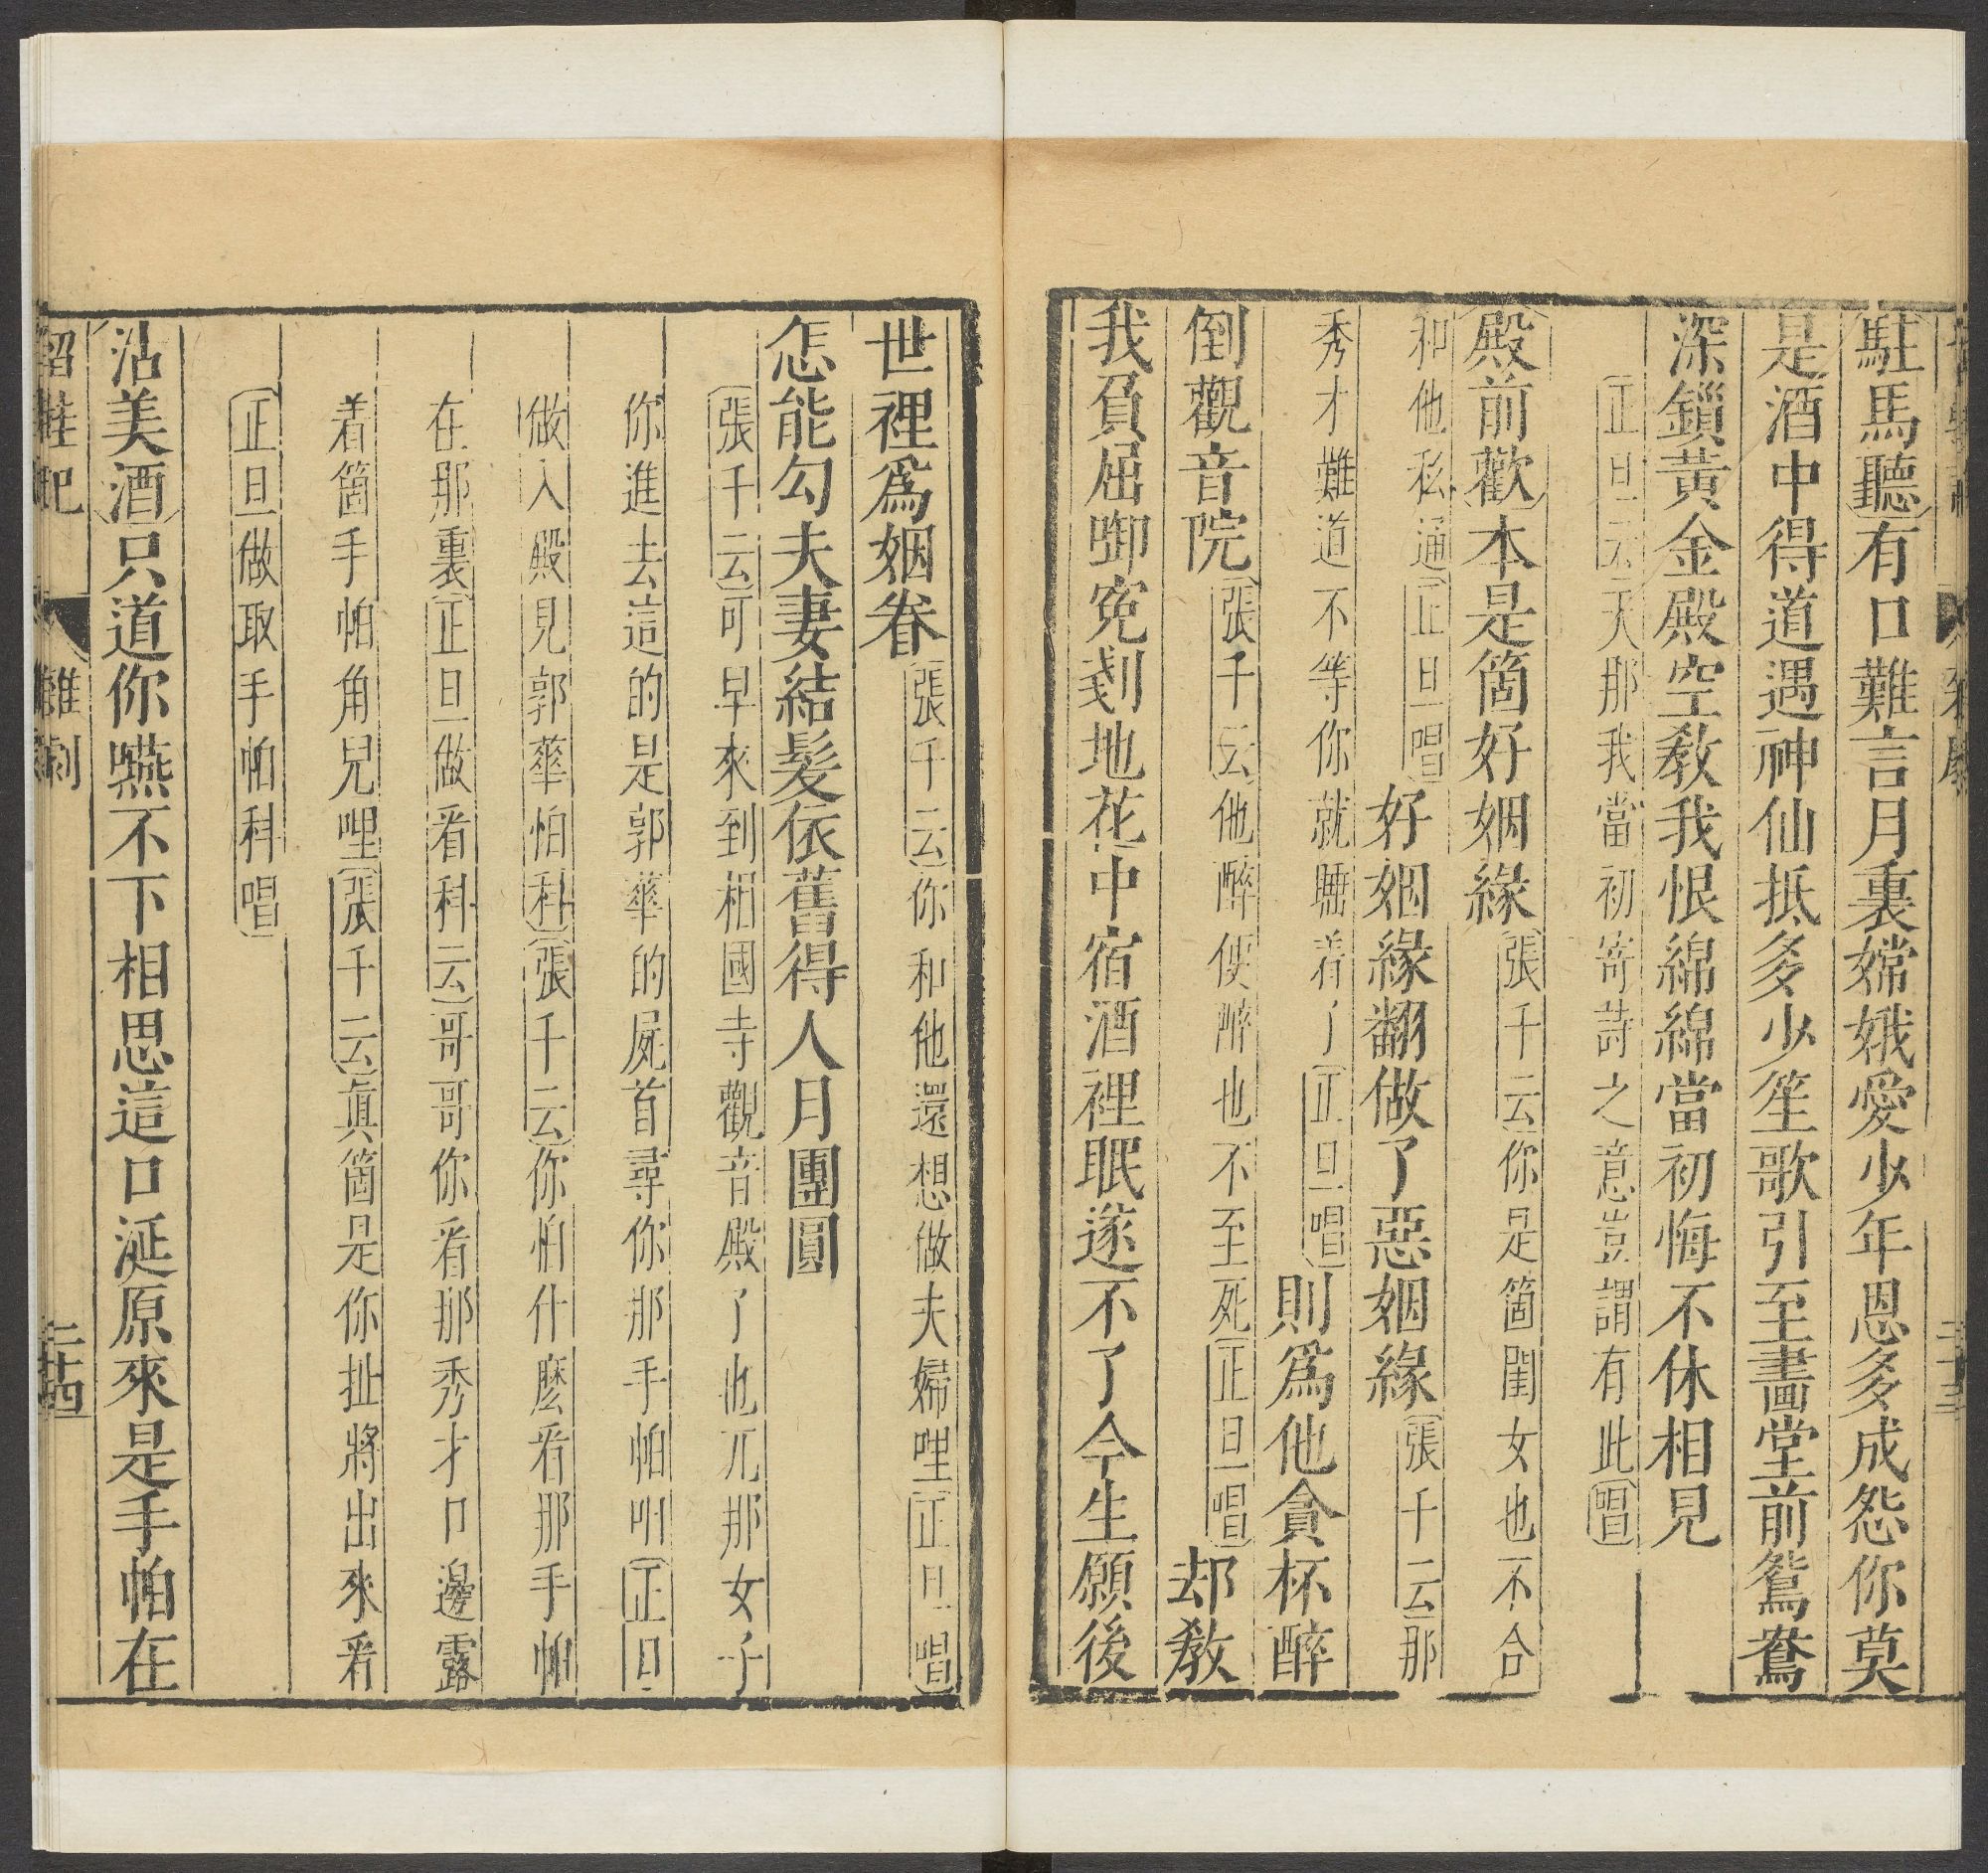 駐馬聽有口難言月裏嫦娥愛少年恩多成怨你莫
是酒中得道遇神仙抵多少笙歌引至畫堂前鴛鴦
深鎖黃金殿空教我恨綿綿當初悔不休相見
正旦云天那我當初寄詩之意豈謂有此唱
殿前歡本是箇好姻緣張千云你是箇閨女也不合
和他私通正旦唱好姻緣翻做了惡姻緣張千云那
秀才難道不等你就睡着了正旦唱則爲他貪杯醉
倒觀音院張千云他醉便醉也不至死正旦唱却教
我負屈啣寃剗地花中宿酒裡眠遂不了今生願後
世裡爲姻眷張千云你和他還想做夫婦哩正旦唱
怎能勾夫妻結髮依舊得人月團圓
張千云可早來到相國寺觀音殿了也兀那女子
你進去這的是郭華的屍首尋你那手帕咱正旦
做入殿見郭華怕科張千云你怕什麽看那手帕
在那裏正旦做看科云哥哥你看那秀才口邊露
着箇手帕角兒哩張千云眞箇是你扯將出來看
正旦做取手帕科唱
沽美酒只道你嚥不下相思這口涎原來是手帕在
留鞋記 雜劇 二十四